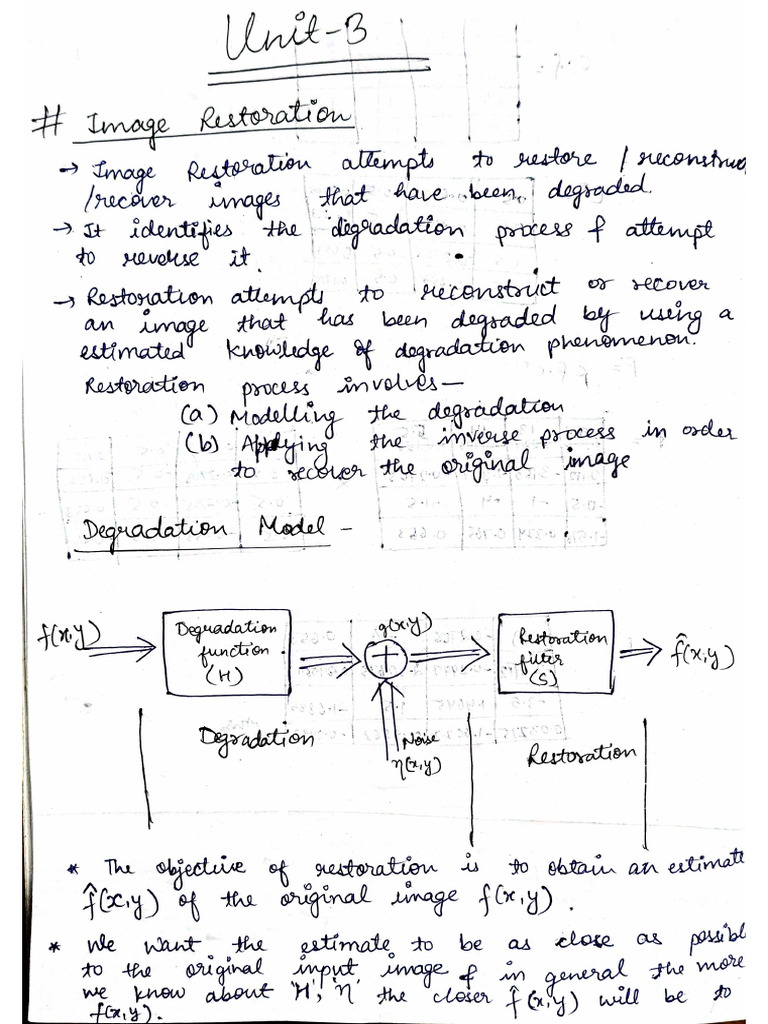 Unit-3
# Image Restoration
→ Image Restoration attempts to restore / reconstruc
/recover images that have been degraded.
→ It identifies the degradation process & attempt
to reverse it.
→ Restoration attempts to reconstruct or recover
an image that has been degraded by using a
estimated knowledge of degradation phenomenon.
Restoration process involves—
(a) Modelling the degradation
(b) Applying the inverse process in order
to recover the original image
Degradation Model -
f(x,y)
Degradation
function
(H)
g(x,y)
Restoration
filter
(S)
f̂(x,y)
Degradation
Noise
η(x,y)
Restoration
* The objective of restoration is to obtain an estimate
f̂(x,y) of the original image f(x,y).
* We want the estimate to be as close as possibl
to the original input image & in general the more
we know about 'H', 'η' the closer f̂(x,y) will be to
f(x,y).